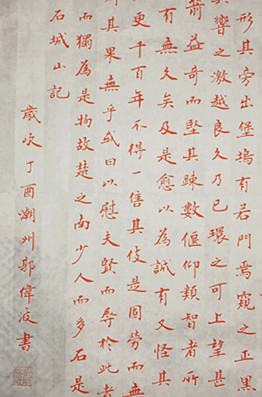 形其旁出堡塢有若門焉窺之正黑
響之激越良久乃已環之可上望甚
箭益奇而堅其疎數偃仰類智者所
有無久矣及是愈以為誠有又怪其
更千百年不得一售其伎是固勞而
其果無乎或曰以慰夫賢而辱於此者
而獨為是物故楚之南少人而多石是
石城山記
歲次丁酉潮州郭偉波書